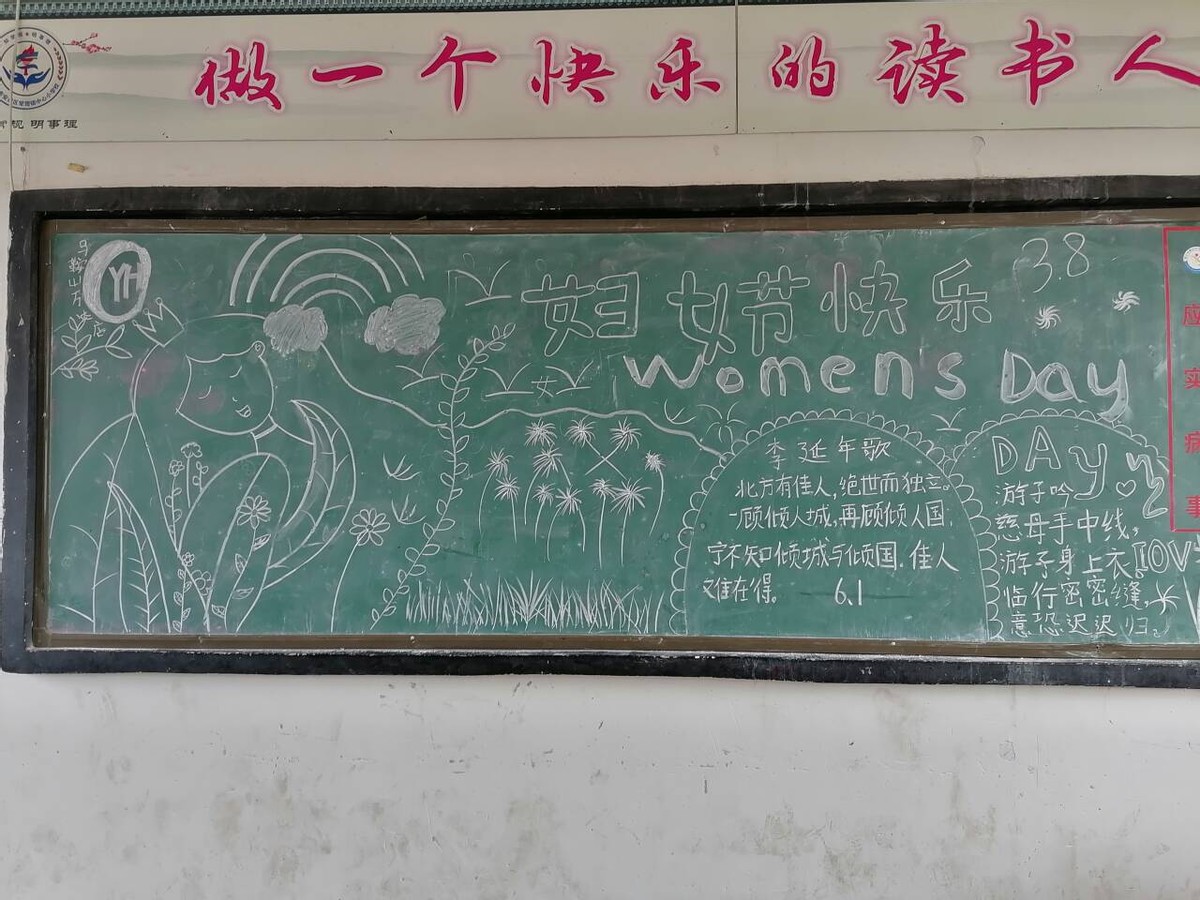 做一个快乐的读书人
明事理
YH
妇女节快乐
3.8
Womens Day
女
李延年歌
北方有佳人,绝世而独立。
一顾倾人城,再顾倾人国.
宁不知倾城与倾国.佳人
难在得。
6.1
DAy
游子吟
慈母手中线,
游子身上衣
临行密密缝,
意恐迟迟归。
应
实
病
事